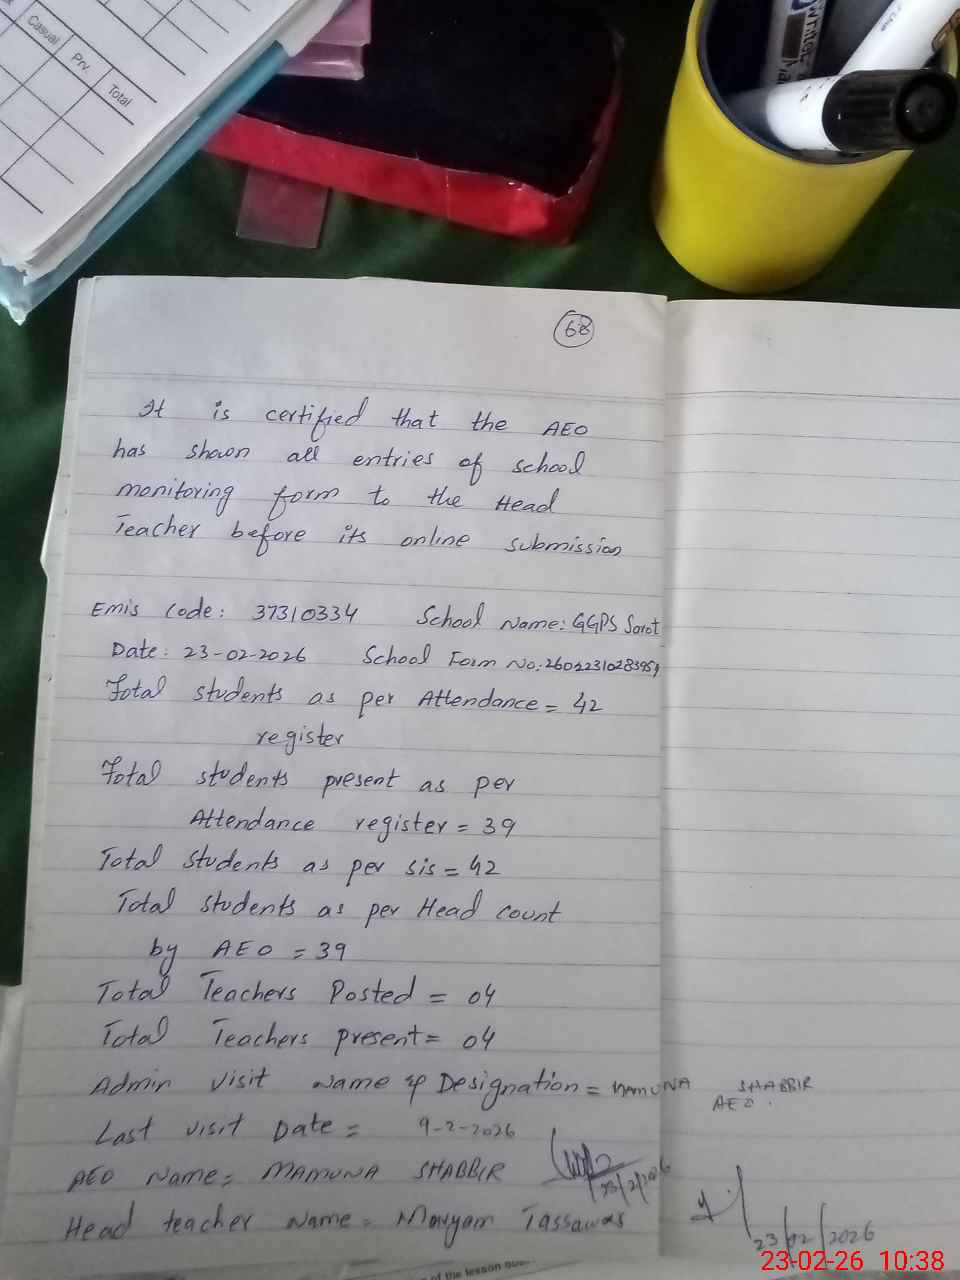 Casual
Prv.
Total
68
It is certified that the AEO
has shown all entries of school
monitoring form to the Head
Teacher before its online submission
Emis Code: 37310334 School Name: GGPS Sarot
Date: 23-02-2026 School Form No:
Total students as per Attendance = 42
register
Total students present as per
Attendance register = 39
Total students as per sis = 42
Total students as per Head count
by AEO = 39
Total Teachers Posted = 04
Total Teachers present = 04
Admin visit Name & Designation = MAMUNA SHABBIR
AEO.
Last visit Date = 9-2-2026
AEO Name = MAMUNA SHABBIR
23/2/2026
Head teacher Name = Maryam Tassawar
23/02/2026
of the lesson
23-02-26 10:38